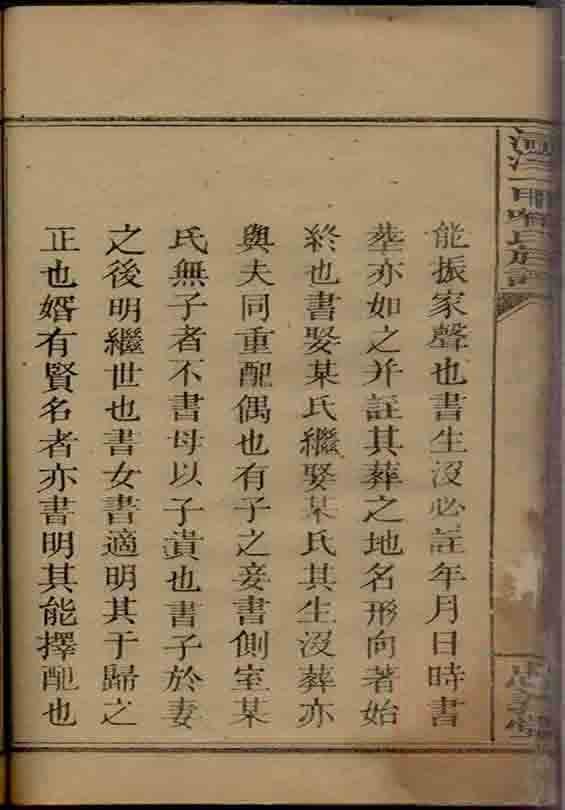 氏族譜
能振家聲也書生沒必註年月日時書
塟亦如之并註其葬之地名形向著始
終也書娶某氏繼娶某氏其生沒葬亦
與夫同重配偶也有子之妾書側室某
氏無子者不書母以子貴也書子於妻
之後明繼世也書女書適明其于歸之
正也婿有賢名者亦書明其能擇配也